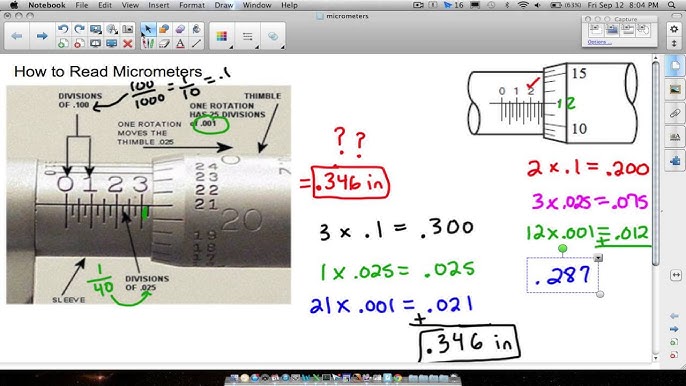 Notebook File Edit View Insert Format Draw Window Help
16 (63%) Fri Sep 12 8:04 PM
micrometers
Capture
Options ...
How to Read Micrometers
100/1000 = 1/10 = .1
DIVISIONS
OF .100
THIMBLE
ONE ROTATION
HAS 25 DIVISIONS
of .001
ONE ROTATION
MOVES THE
THIMBLE .025
0 1 2 3
0
24
23
22
21
20
19
18
17
1/40
DIVISIONS
OF .025
SLEEVE
? ?
= .346 in
3 x .1 = .300
1 x .025 = .025
21 x .001 = .021
+
.346 in
0 1 2
15
12
10
2 x .1 = .200
3 x .025 = .075
12 x .001 = .012
+
.287